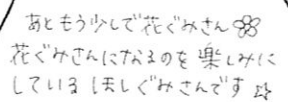 あともう少しで花ぐみさん
花ぐみさんになるのを楽しみに
しているほしぐみさんです☆